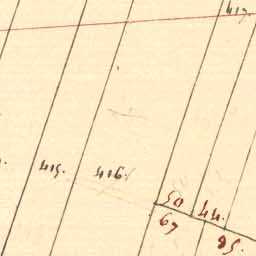 417.
415. 416.
50 44.
67
85.